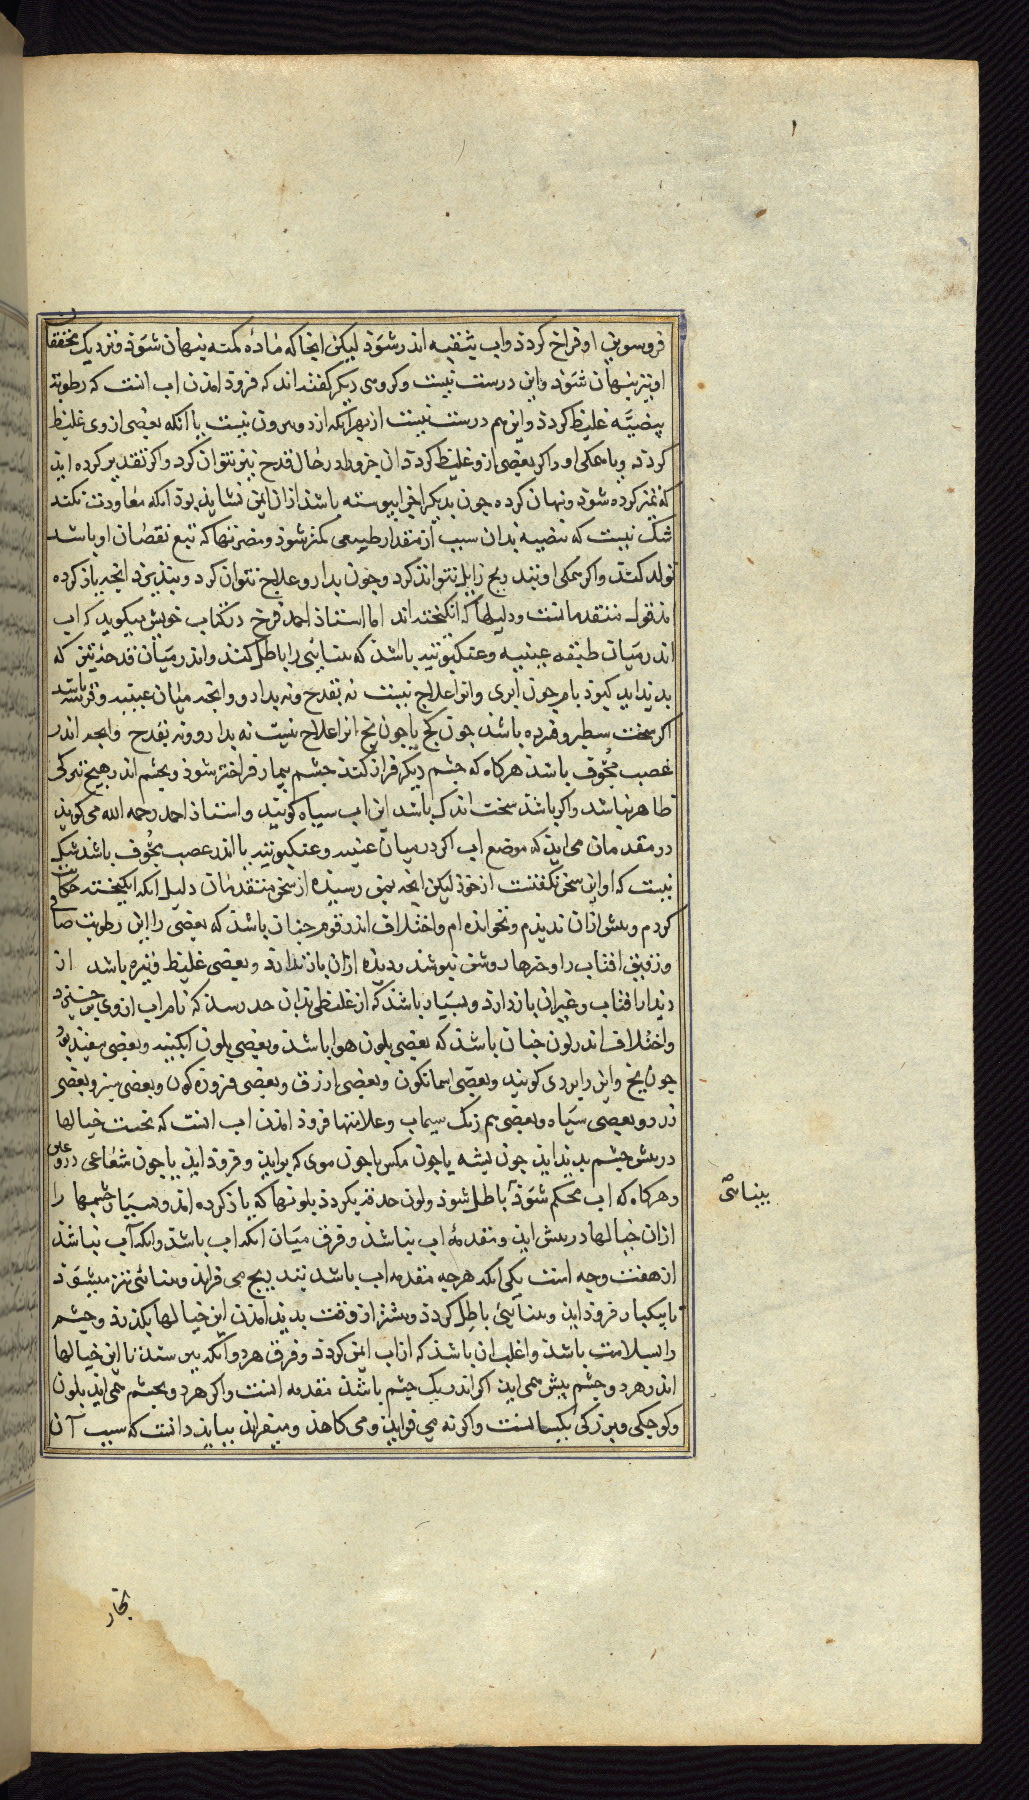 فروسوین او فراخ کردد واب بثقبه اندر شود لیکن انجا که ماده کمته بنهان شود ونزدیک محققان
او نیز بنهان شود واین درست نیست وکروهی دیکر کفته اند که فرود امدن اب انست که رطوبة
بیضیّه غلیظ کردد واین هم درست نیست از بهر انکه از دو بیرون نیست یا انکه بعضی از وی غلیظ
کردد ویا همکی او واکر بعضی ازو غلیظ کردد ان جزو را در حال قدح نیز نتوان کرد واکر تقدیر کرده اید
که نیز کرده شود ونهان کرده چون بدیکر اجزا پیوسته باشد ازان ایمن نشاید بود انکه معاودت نکند
شک نیست که بیضیه بدان سبب از مقدار طبیعی کمتر شود ومضرتها که تبع نقصان او باشد
تولد کند واکر همکی او ببندد هیچ زایل نتواند کرد وچون بدارو علاج نتوان کرد وبپذیرد انچه یاد کرده
امد قول متقدمانست ودلیلها که انکیخته اند اما استاذ احمد فرخ در کتاب خویش میکوید که اب
اندر میان طبقه عنبیه وعنکبوتیه باشد که بینایی را باطل کند واندر میان قدحیتین که
بدید اید کبود بام چون ابری وانرا علاج نیست نه بقدح ونه بدارو وانچه میان عنبیه وقرنیه باشد
اکر سخت سطبر وفسرده باشد چون کچ یا چون یخ انرا علاج نیست نه بدارو ونه بقدح وانچه اندر
عصب مجوف باشد هرکاه که چشم دیکر فراز کند چشم بیمار فراختر شود وبچشم اندر هیچ تیرکی
ظاهر نباشد واکر باشد سخت اندک باشد این اب سیاه کویند واستاذ احمد رحمه الله می کوید
در مقدمات می اید که موضع اب اکر در میان عنبیه وعنکبوتیه یا اندر عصب مجوف باشد شک
نیست که او این سخن نکفتست از خود لیکن انچه بمن رسیده از سخن متقدمان دلیل انکه انکیخته حکایت
کردم وبیش ازان ندیدم ونخوانده ام واختلاف اندر قوم چنان باشد که بعضی را این رطوبت صافی
ورقیق افتاب را وچیزها روشن نپوشد ودیده ازان باز ندارد وبعضی غلیظ وتیره باشد از
دیدار افتاب وغیر ان باز دارد وبسیار باشد که از غلیظی بدان حد رسد که نام اب ازوی برخیزد
واختلاف اندر لون چنان باشد که بعضی بلون هوا باشد وبعضی بلون ابکینه وبعضی سفید بود
چون یخ واین را بردی کویند وبعضی اسمانکون وبعضی ازرق وبعضی فیروزه کون وبعضی سبز وبعضی
زرد وبعضی سیاه وبعضی هم رنک سیماب وعلامتها فرود امدن اب انست که نخست خیالها
در پیش چشم بدید اید چون پشه یا چون مکس یا چون موی که براید وفرود اید یا چون شعاعی دروغین
وهرکاه که اب محکم شود باطل شود ولون حدقه بکردد بلونها که یاد کرده امد وبسیار چشمها را
بینائی
ازان خیالها در پیش اید ومقدمهٔ اب نباشد وفرق میان انکه اب باشد وانکه آب نباشد
از هفت وجه است یکی انکه هرچه مقدمه اب باشد بتدریج می فزاید وبینائی نیز میشود
تا بیکبار فرود اید وبینایی باطل کردد وبیشتر از وقت بدید امدن این خیالها بکذرد وچشم
را سلامت باشد واغلب ان باشد که از اب ایمن کردد وفرق هر دو انکه بپرسند تا این خیالها
اندر هر دو چشم پیش همی اید اکر اندر یک چشم باشد مقدمه انست واکر هر دو بچشم همی اید بلون
وکوچکی وبزرکی یکسانست واکر نه می فزاید ومی کاهد ومیفزاید بباید دانست که سبب آن
بخار